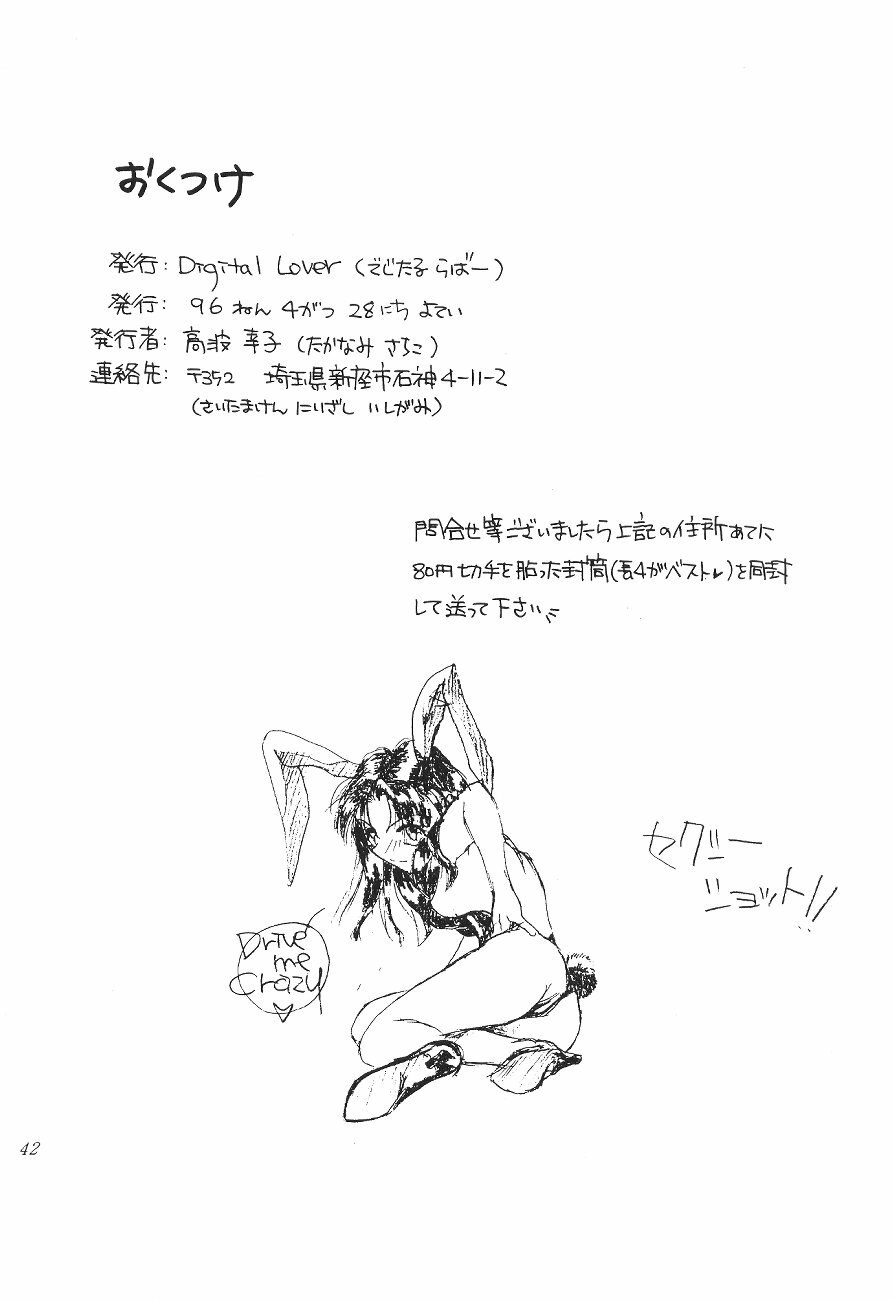 おくつけ
発行: Digital Lover (でじたる らばー)
発行: 96ねん 4がつ 28にち よてい
発行者: 高波 幸子 (たかなみ さちこ)
連絡先: 〒352 埼玉県新座市石神4-11-2
(さいたまけん にいざし いしがみ)
問合せ等ございましたら上記の住所あてに
80円切手を貼った封筒(長4がベスト♥)を同封
して送って下さい
セクシー
ショット!!
Drive
me
Crazy
♡
42